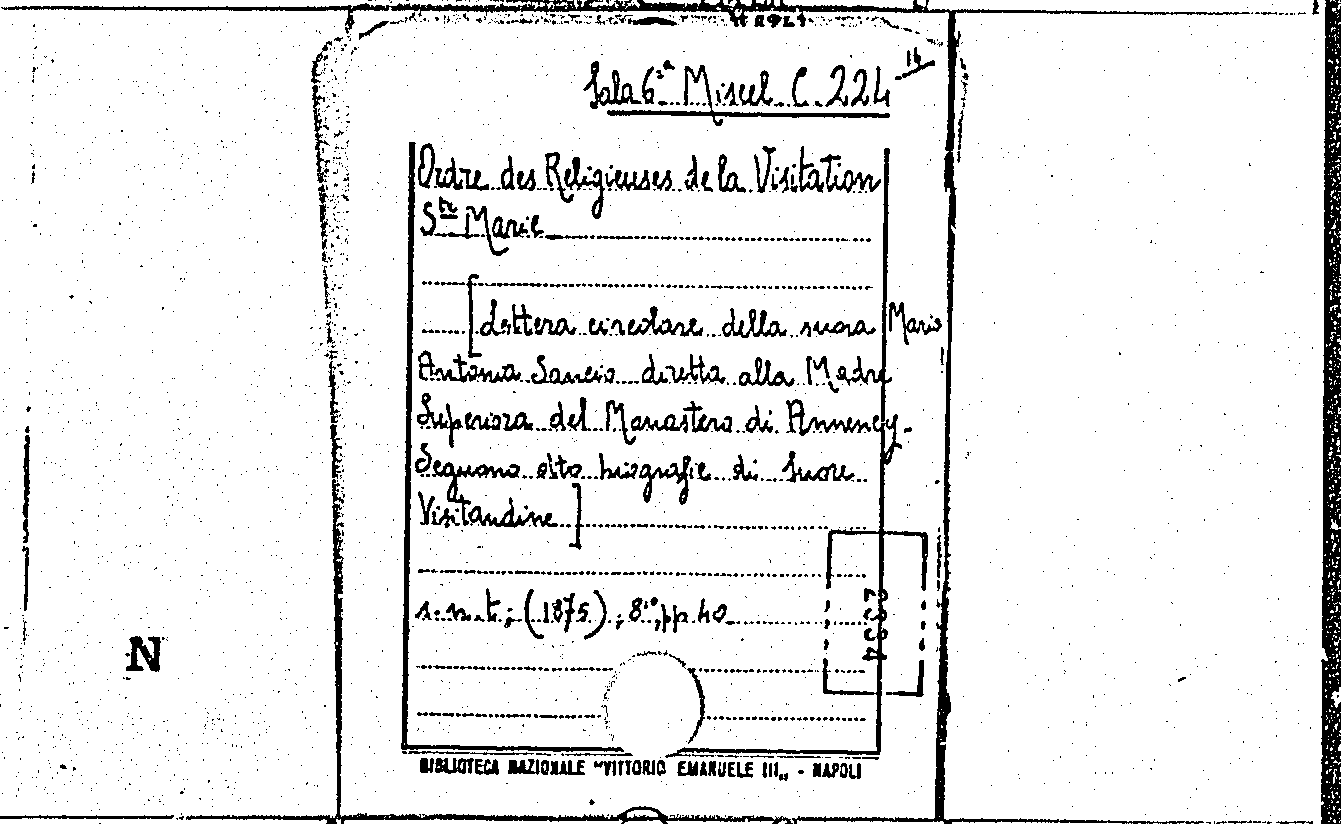 Sala 6.ª Miscel. C. 224 16
Ordre des Religieuses de la Visitation
Ste Marie
[Lettera circolare della suora Maria
Antonia Sancio diretta alla Madre
Superiora del Monastero di Annency.
Seguono otto biografie di Suore
Visitandine]
s.n.t; (1875); 8°; pp 40
2334
N
BIBLIOTECA NAZIONALE "VITTORIO EMANUELE III„ - NAPOLI